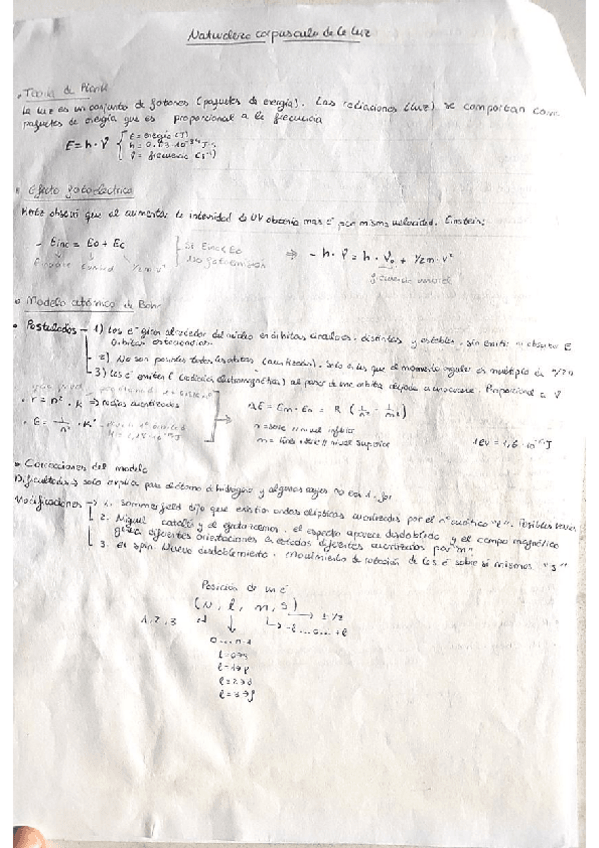 Naturaleza corpuscula de la luz
• Teoría de Planck
La luz es un conjunto de fotones (paquetes de energía). Las radiaciones (luz) se comportan como
paquetes de energía que es proporcional a la frecuencia
E = h · γ { E = energía (J)
h = 10⁻³⁴ J·s
γ = frecuencia (s⁻¹)
• Efecto fotoeléctrico
Hertz observó que al aumentar la intensidad de UV obtenía mas e⁻ por misma velocidad. Einstein:
- Einc = Eo + Ec
Si Einc < Eo
No fotoemisión
⇒ - h · γ = h · γ₀ + 1/2 m · v²
1/2 m v²
frecuencia umbral
• Modelo atómico de Bohr
• Postulados - 1) Los e⁻ giran alrededor del núcleo en órbitas circulares, distintas y estables, sin emitir ni absorber E
Órbitas estacionarias
2) No son posibles todas las órbitas (cuantización). Solo en las que el momento angular es múltiplo de
3) Los e⁻ emiten E (radiación electromagnética) al pasar de una órbita alejada a una cercana. Proporcional a γ
• r = n² · K ⇒ radios cuantizados
ΔE = Em - En = R (1/n² - 1/m²)
n = serie // nivel inferior
• E = 1/n² · K'
m = línea serie // nivel superior
1eV = 1,6 · 10⁻¹⁹ J
• Correcciones del modelo
Dificultades → solo explica para el átomo de hidrógeno y algunas rayas no
Modificaciones → 1. Sommerfeld dijo que existían ondas elípticas cuantizadas por el nº cuántico "l". Posibles
2. Miguel Catalá y el efecto Zeeman. el espectro aparece desdoblado y el campo magnético
genera diferentes orientaciones en estados diferentes cuantizados por "m".
3. El spin. Nuevo desdoblamiento. Movimiento de rotación de los e⁻ sobre si mismos "s"
Posición de un e⁻
(N, l, m, s) → ± 1/2
1, 2, 3
-l ... 0 ... +l
0 ... n-1
l=0→s
l=1→p
l=2→d
l=3→f